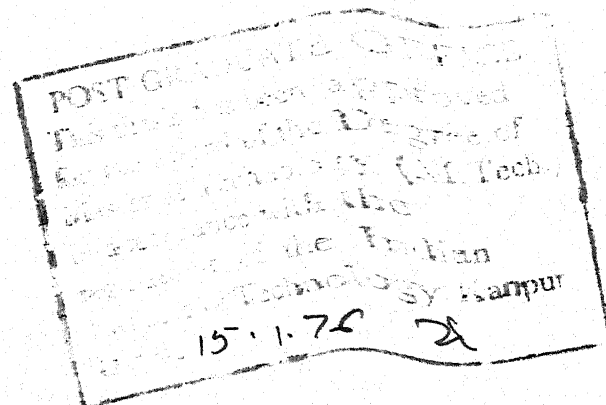 POST GRADUATE OFFICE
This thesis has been approved
for the award of the Degree of
Master of Technology (M. Tech.)
in accordance with the
regulations of the Indian
Institute of Technology Kanpur
15.1.76